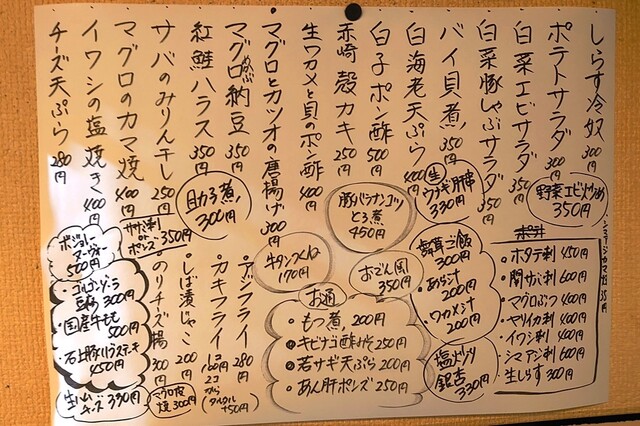 しらす冷奴 300円
ポテトサラダ 300円
白菜エビサラダ 350円
白菜豚しゃぶサラダ 350円
バイ貝煮 350円
白海老天ぷら 400円
白子ポン酢 500円
赤崎殻カキ 250円
生ワカメと貝のポン酢 400円
マグロとカツオの唐揚げ 300円
マグロ納豆 350円
紅鮭ハラス 350円
サバのみりん干し 250円
マグロのカマ焼 400円
イワシの塩焼き 400円
チーズ天ぷら 280円
野菜エビ炒め 350円
生ウナギ肝串 330円
豚バラナンコツとろ煮 450円
目力ろ煮 300円
サザ刺orポンズ 350円
ボジョレーヌーヴォー 500円
ゴルゴンゾーラ豆腐 300円
・国産牛もも 500円
・石上豚バラステーキ 450円
生ハムチーズ 330円
・のりチーズ揚 300円
・しば漬じゃこ 200円
・カキフライ 1コ160円 2コから (タルタル+50円)
・アジフライ 280円
マグロ皮焼 300円
牛タンつくね 170円
おでん風 350円
お通
・もつ煮 200円
・キビナゴ酢みそ 250円
・若サギ天ぷら 200円
・あん肝ポンズ 250円
舞茸ご飯 300円
・あら汁 200円
・ワカメ汁 200円
塩炒り銀杏 330円
・ホタテ刺 450円
・関サバ刺 600円
・マグロぶつ 400円
・ヤリイカ刺 400円
・イワシ刺 400円
・シマアジ刺 600円
・生しらす 300円